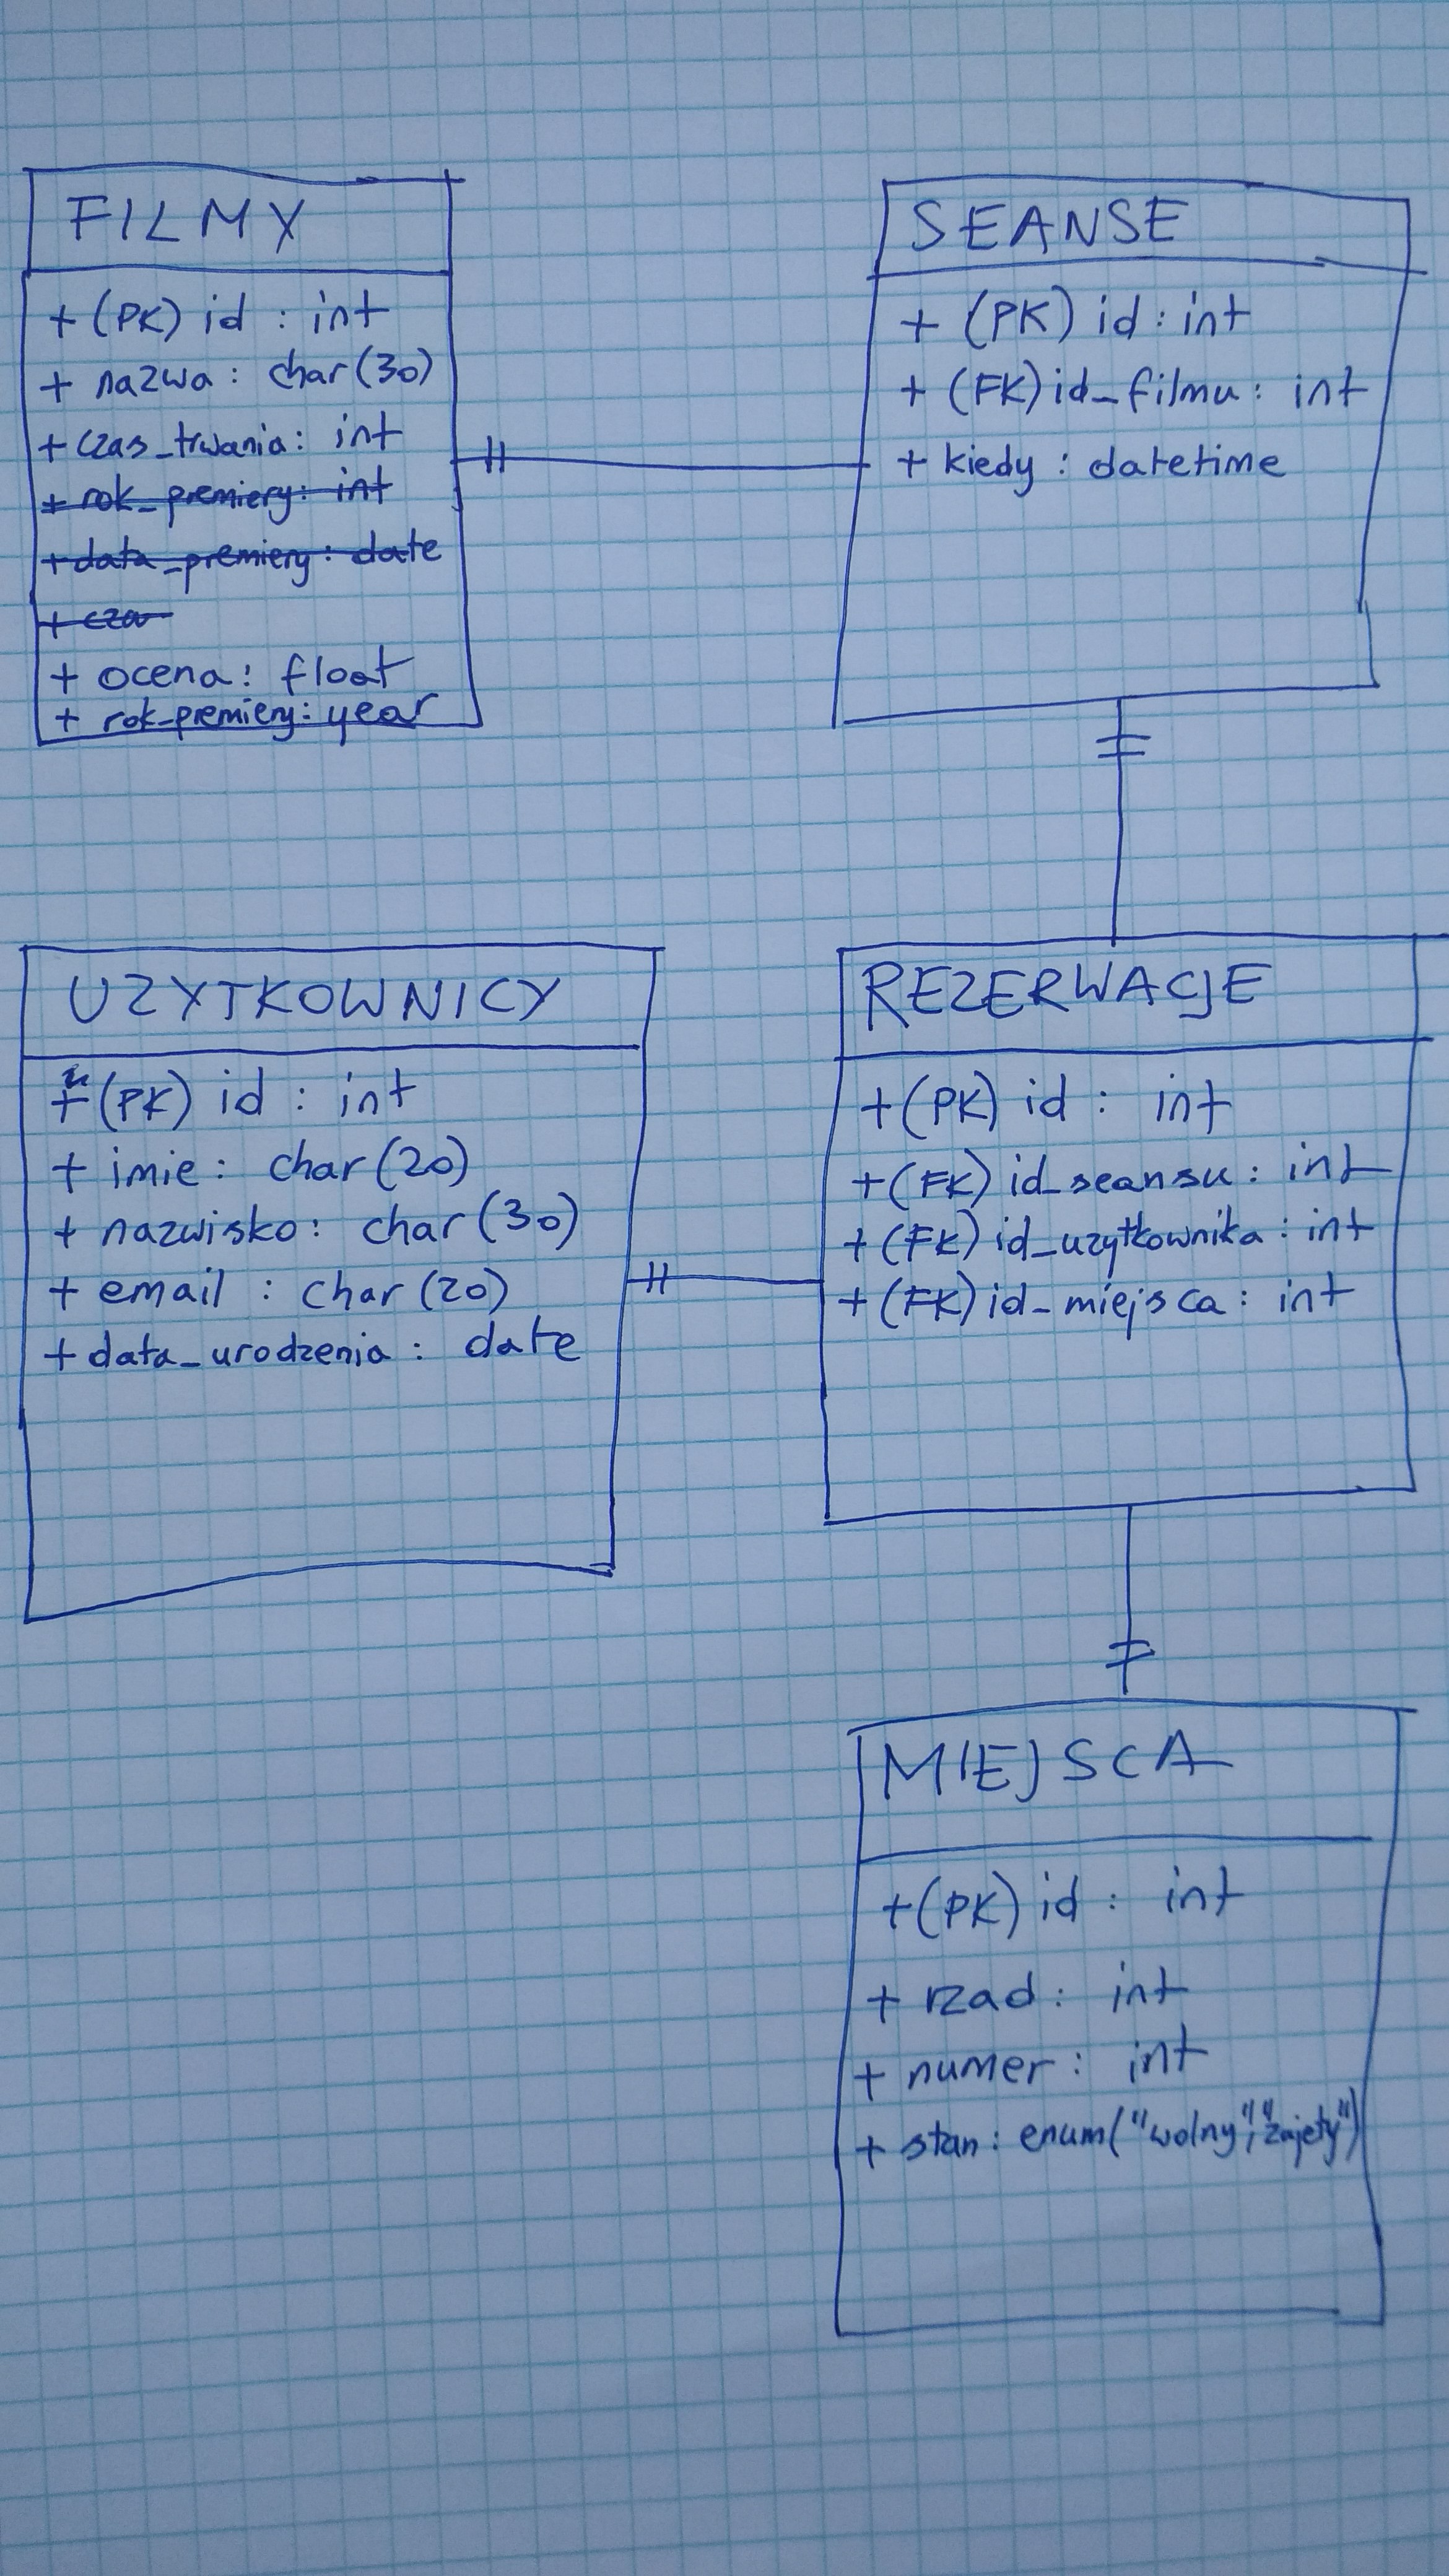 FILMY
+ (PK) id : int
+ nazwa : char(30)
+ czas_trwania : int
+ rok_premiery : int
+ data_premiery : date
+ cza
+ ocena : float
+ rok_premiery : year
SEANSE
+ (PK) id : int
+ (FK) id_filmu : int
+ kiedy : datetime
UZYTKOWNICY
+ (PK) id : int
+ imie : char(20)
+ nazwisko : char(30)
+ email : char(20)
+ data_urodzenia : date
REZERWACJE
+ (PK) id : int
+ (FK) id_seansu : int
+ (FK) id_uzytkownika : int
+ (FK) id_miejsca : int
MIEJSCA
+ (PK) id : int
+ rzad : int
+ numer : int
+ stan : enum("wolny","zajety")